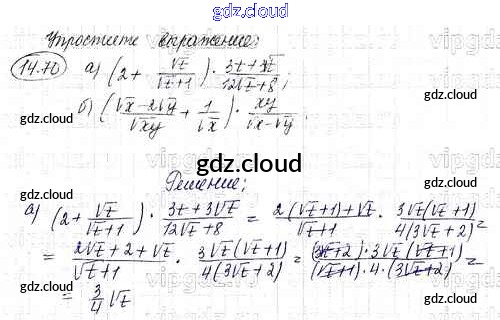 gdz.cloud
Упростите выражение:
14.70 а) (2 + √t/(√t+1)) · (3t+3√t)/(12√t+8);
б) ((√x-2√y)/√xy + 1/√x) · xy/(√x-√y).
gdz.cloud
Решение:
а) (2 + √t/(√t+1)) · (3t+3√t)/(12√t+8) = (2(√t+1)+√t)/(√t+1) · (3√t(√t+1))/(4(3√t+2)) =
= (2√t+2+√t)/(√t+1) · (3√t(√t+1))/(4(3√t+2)) = ((3√t+2)·3√t(√t+1))/((√t+1)·4·(3√t+2)) =
= 3/4 √t
gdz.cloud